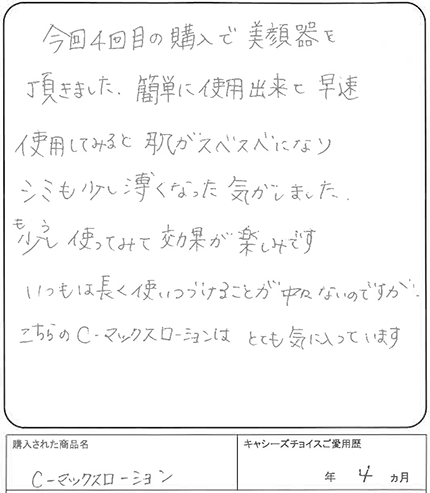 今回4回目の購入で美顔器を
頂きました。簡単に使用出来と早速
使用してみると肌がスベスベになり
シミも少し薄くなった気がしました。
もう少し使ってみて効果が楽しみです
いつもは長く使いつづけることが中々ないのですが、
こちらのC-マックスローションはとても気に入っています
購入された商品名
C-マックスローション
キャシーズチョイスご愛用歴
年 4 カ月